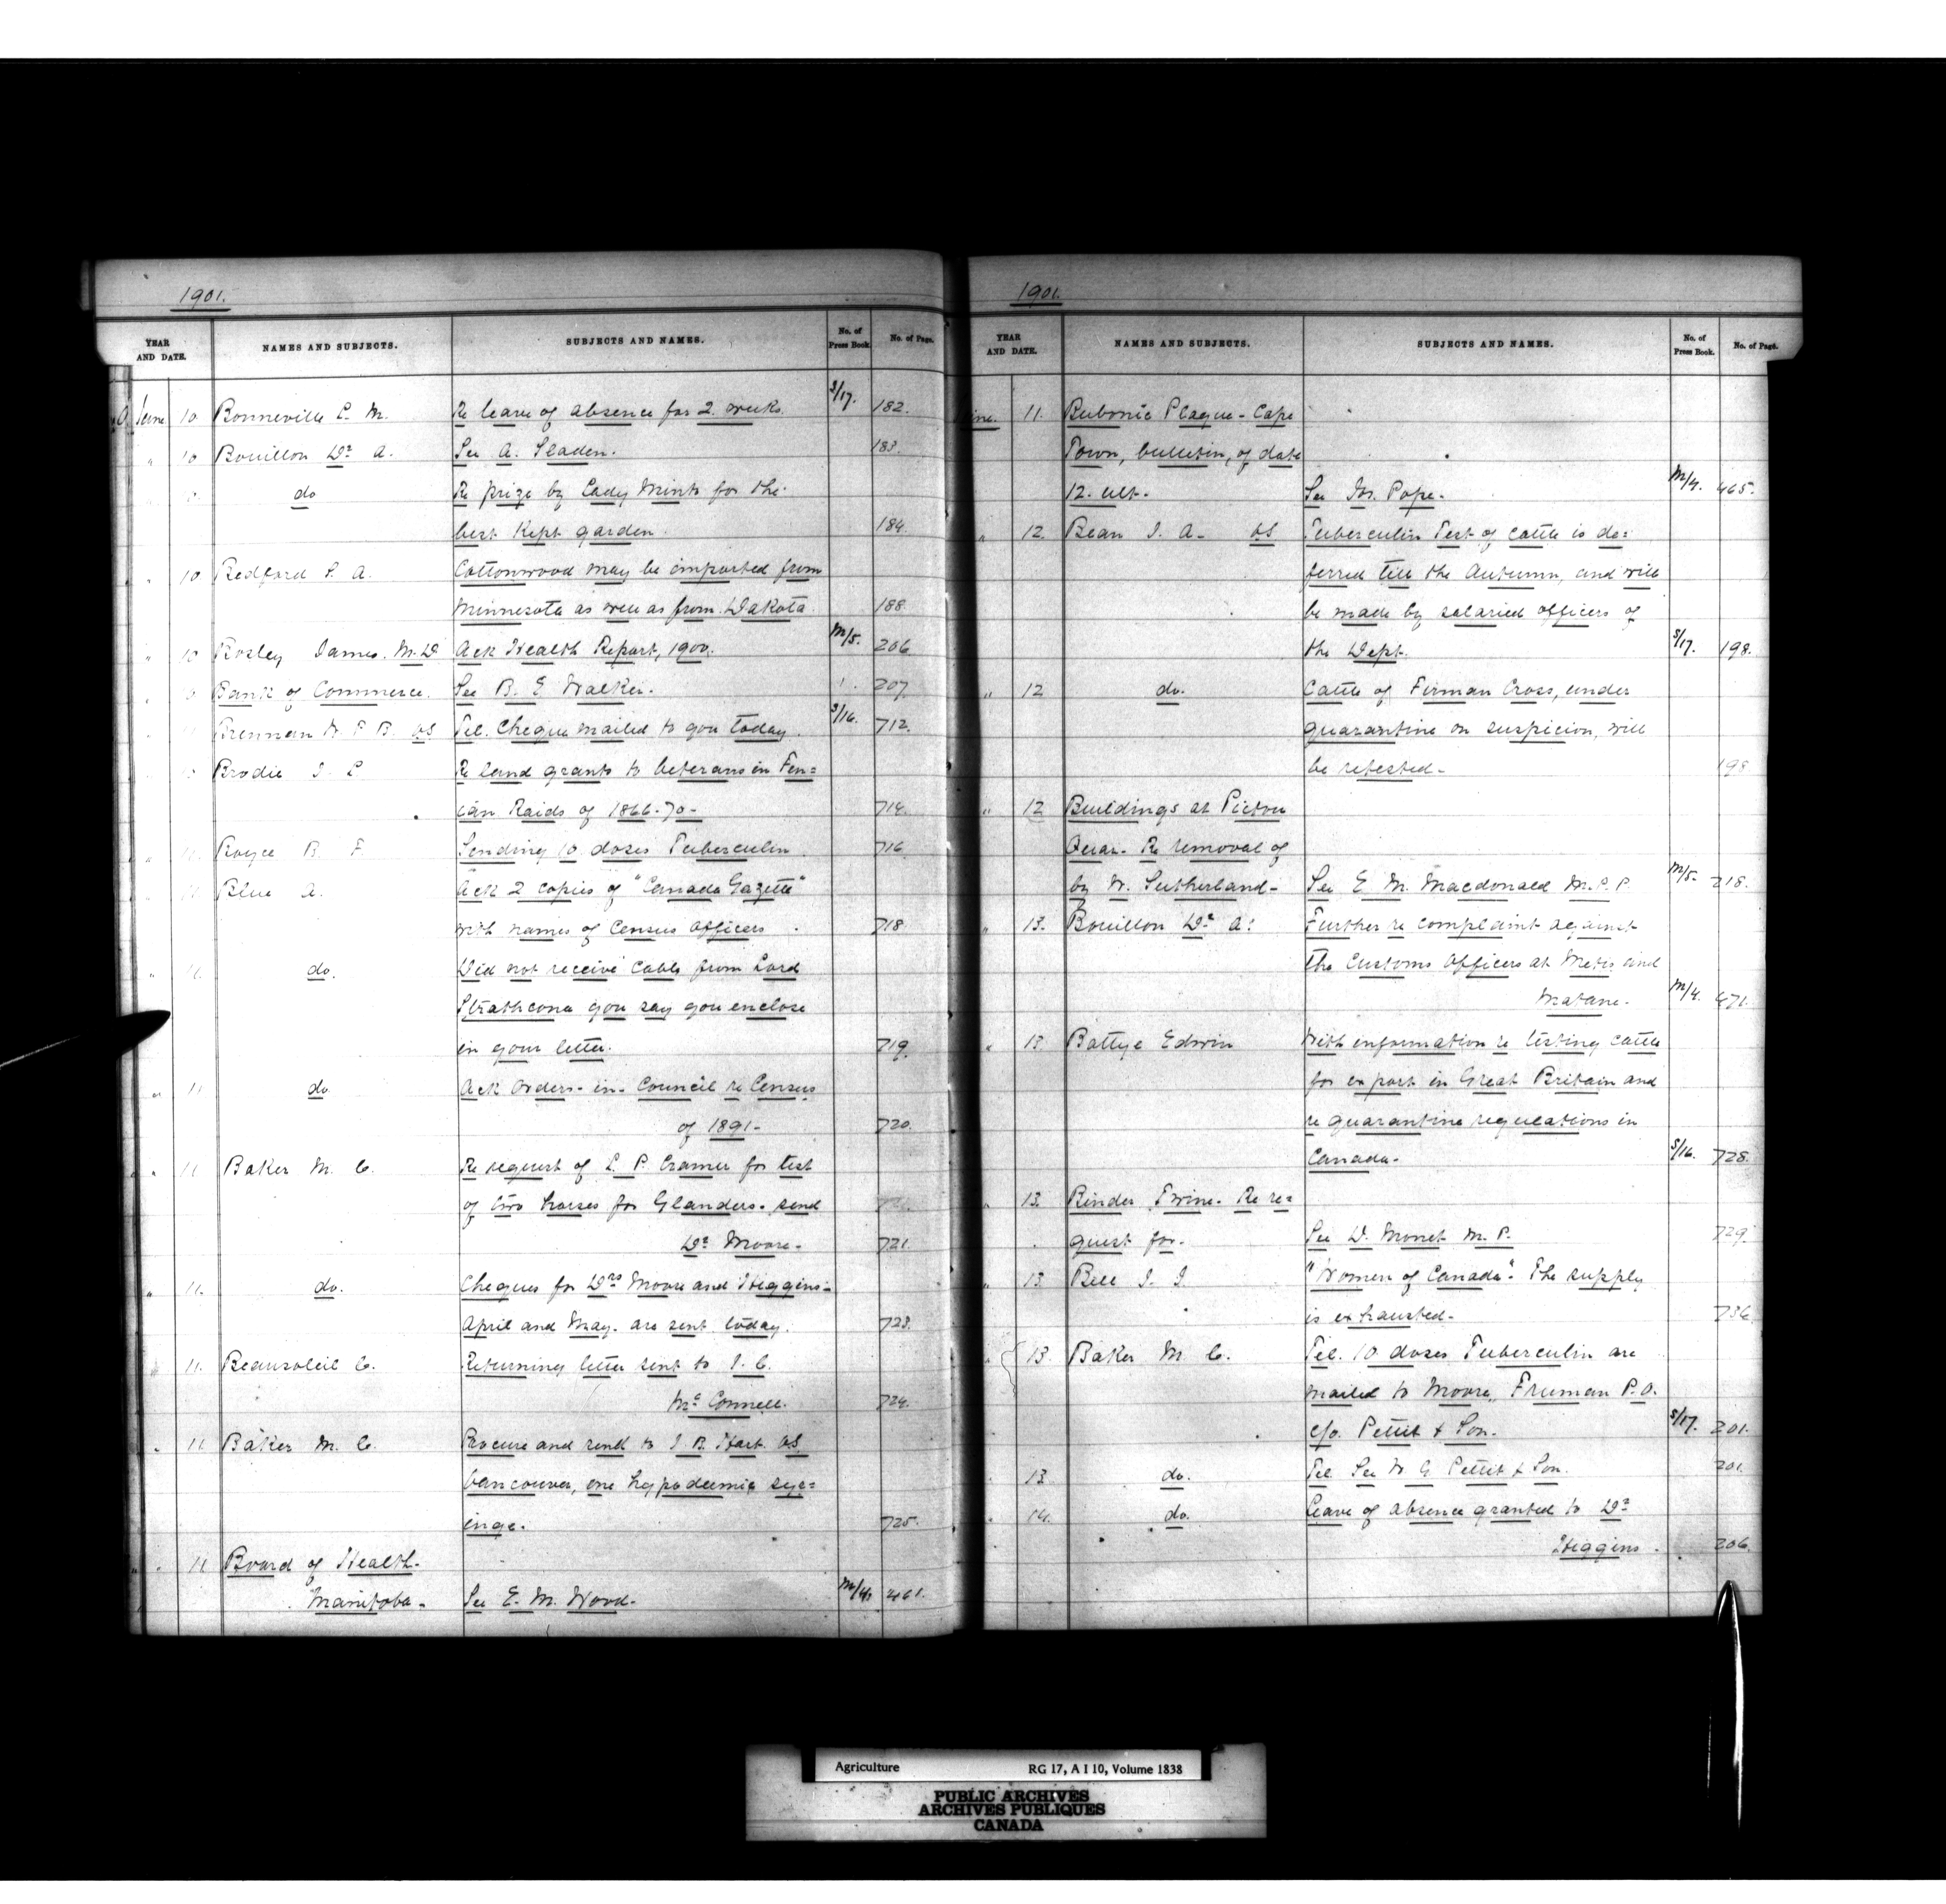 1901.
YEAR AND DATE. NAMES AND SUBJECTS. SUBJECTS AND NAMES. No. of Press Book. No. of Page.
June 10 Bonneville L. M. Re leave of absence for 2 weeks. S/17. 182.
" 10 Bouillon Dr A. See A. Sladen. 183.
do Re prize by Lady Minto for the
best kept garden. 184.
" 10 Bedford S. A. Cottonwood may be imported from
Minnesota as well as from Dakota. 188.
" 10 Rosley James. M.D Ack Health Report, 1900. M/5. 206
Bank of Commerce. See B. E Walker. 207.
Brennan W F B. VS Tel. Cheque mailed to you today. S/16. 712.
Brodie J. L Re land grants to Veterans in Fen=
ian Raids of 1866-70- 714.
" 11 Boyce B. F Sending 10 doses Tuberculin 716
" 11 Blue A. Ack 2 copies of "Canada Gazette"
with names of Census Officers 718.
" 11. do. Did not receive cable from Lord
Strathcona you say you enclose
in your letter. 719.
" 11 do Ack Orders-in-Council re Census
of 1891- 720.
" 11 Baker M. C. Re request of L. P. Cramer for test
of two horses for Glanders. send
Dr Moore- 721.
" 11. do. Cheques for Drs Moore and Higgins-
April and May. are sent today. 723.
" 11. Beausoleil C. Returning letter sent to J. C.
McConnell. 724.
" 11 Baker M. C. Procure and send to J. B. Hart. VS
Vancouver, one hypodermic syr=
inge. 725.
" 11 Board of Health-
Manitoba- See E. M. Wood- M/4. 461.
1901.
YEAR AND DATE. NAMES AND SUBJECTS. SUBJECTS AND NAMES. No. of Press Book. No. of Page.
June. 11. Bubonic Plague- Cape
Town, bulletin, of date
12. ult- See Jos. Pope- M/4. 465.
" 12. Bean J. A- VS Tuberculin Test of cattle is de=
ferred till the Autumn, and will
be made by salaried officers of
the Dept. S/17. 198.
" 12 do. Cattle of Firman Cross, under
quarantine on suspicion, will
be retested- 198
" 12 Buildings at Pictou
Quar- Re removal of
by W. Sutherland- See E. M. Macdonald M.P.P. M/5. 218.
" 13. Bouillon Dr A. Further re complaint against
the Customs Officers at Metis and
Matane- M/4. 471.
" 13 Battye Edwin With information re testing cattle
for export in Great Britain and
re quarantine regulations in
Canada- S/16. 728.
" 13. Binder Twine- Re re=
quest for- See D. Monet M. P. 729.
" 13 Bell J. J. "Women of Canada"- The supply
is exhausted- 736.
" 13 Baker M. C. Tel. 10 doses Tuberculin are
mailed to Moore, Fruman P.O.
c/o. Pettit & Son. S/17. 201.
13 do. Tel See W G Pettit & Son. 201
14. do. Leave of absence granted to Dr
Higgins. 206.
Agriculture RG 17, A I 10, Volume 1838
PUBLIC ARCHIVES
ARCHIVES PUBLIQUES
CANADA